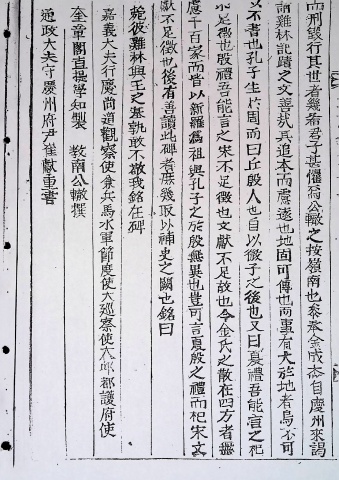 而刑毀行其世者幾希君子甚懼焉公轍之按嶺南也泰承金成杰自慶州來謁
請雞林記蹟之文善哉其追本而慮遠也地固可傳也而事有大於地者烏不可
以不書也孔子生於周而曰丘殷人也自以微子之後也又曰夏禮吾能言之杞
不足徵也殷禮吾能言之宋不足徵也文獻不足故也今金氏之散在四方者無
慮千百家而皆以新羅爲祖與孔子之於殷無異也豈可言夏殷之禮而杞宋文
獻不足徵也後有善讀此碑者庶幾取以補史之闕也銘曰
菀彼雞林興王之基孰敢不敬我銘在碑
嘉義大夫行慶尚道觀察使兼兵馬水軍節度使大巡察使大邱都護府使
奎章閣直提學知製 教南公轍撰
通政大夫守慶州府尹崔獻重書